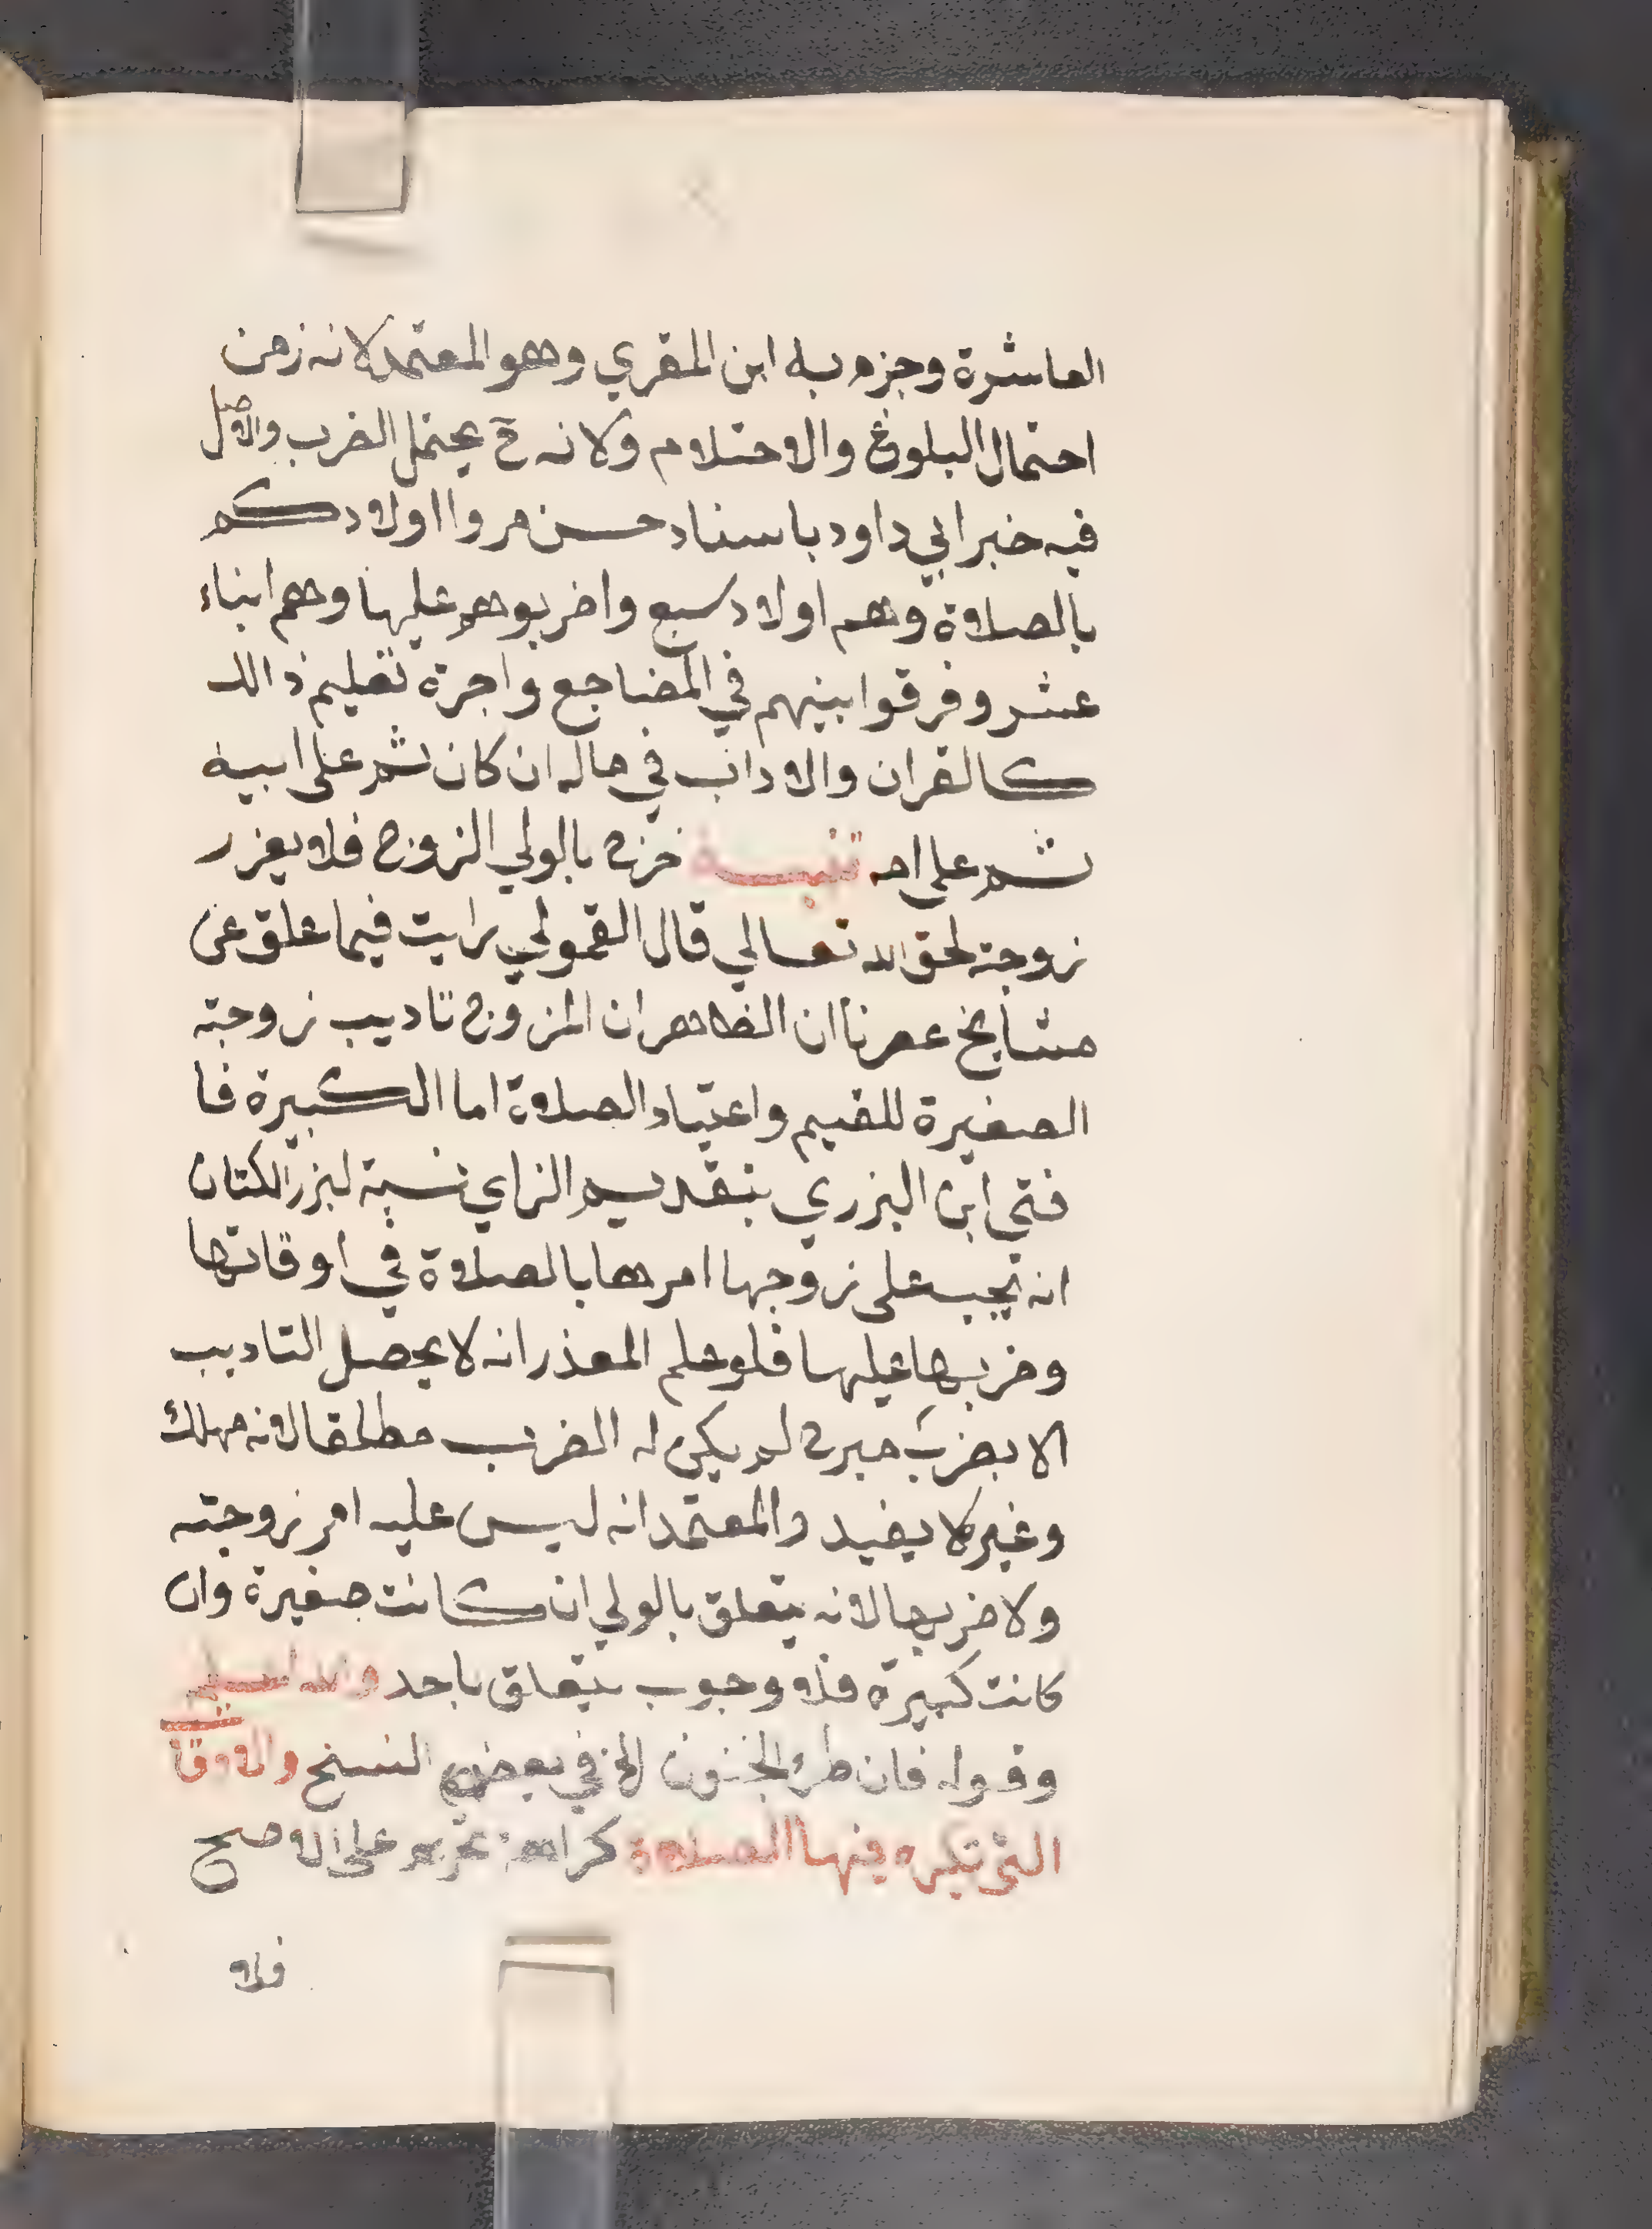 العاشرة وجزم به ابن المقري وهو المعتمد لانه زمن
احتمال البلوغ والاحتلام ولانه ح يحتمل الضرب والاصل
فيه خبر ابي داود باسناد حسن مروا اولادكم
بالصلاة وهم اولاد سبع واضربوهم عليها وهم ابناء
عشر وفرقوا بينهم في المضاجع واجرة تعليم ذالك
كالقران والاداب في ماله ان كان ثم على ابيه
ثم على امه تنبيه خرج بالولي الزوج فلا يعزر
زوجته لحق الله تعالي قال القمولي رايت فيما علق عن
مشايخ عصرنا ان الظاهر ان للزوج تاديب زوجته
الصغيرة للقيم واعتياد الصلاة اما الكبيرة فا
فتى ابن البزري بتقديم الزاي نسبة لبزر الكتان
انه يجب على زوجها امرها بالصلاة في اوقاتها
وضربها عليها فلو علم المعذر انه لا يحصل التاديب
الا بضرب مبرح لم يكن له الضرب مطلقا لانه مهلك
وغيره لا يفيد والمعتمد انه ليس عليه امر زوجته
ولا ضربها لانه يتعلق بالولي ان كانت صغيرة وان
كانت كبيرة فلا وجوب يتعلق باحد والله اعلم
وقوله فان طرء الجنون الخ في بعض النسخ والاوقات
التي تكره فيها الصلاة كراهة تحريم على الاصح
فلا